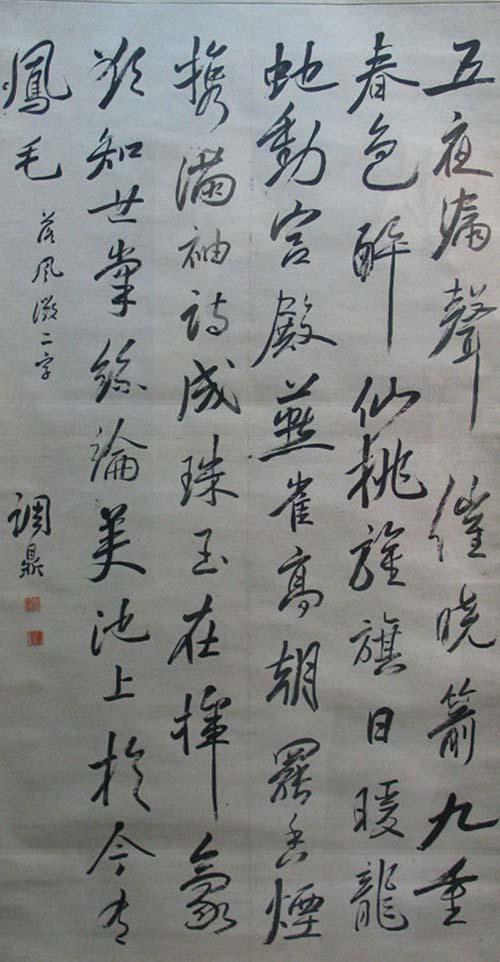 五夜漏聲催曉箭九重
春色酔仙桃旌旗日暖龍
虵動宮殿燕雀高朝罷香煙
携滿袖詩成珠玉在揮毫
欲知世掌絲綸美池上於今有
鳳毛
落風微二字
調鼎